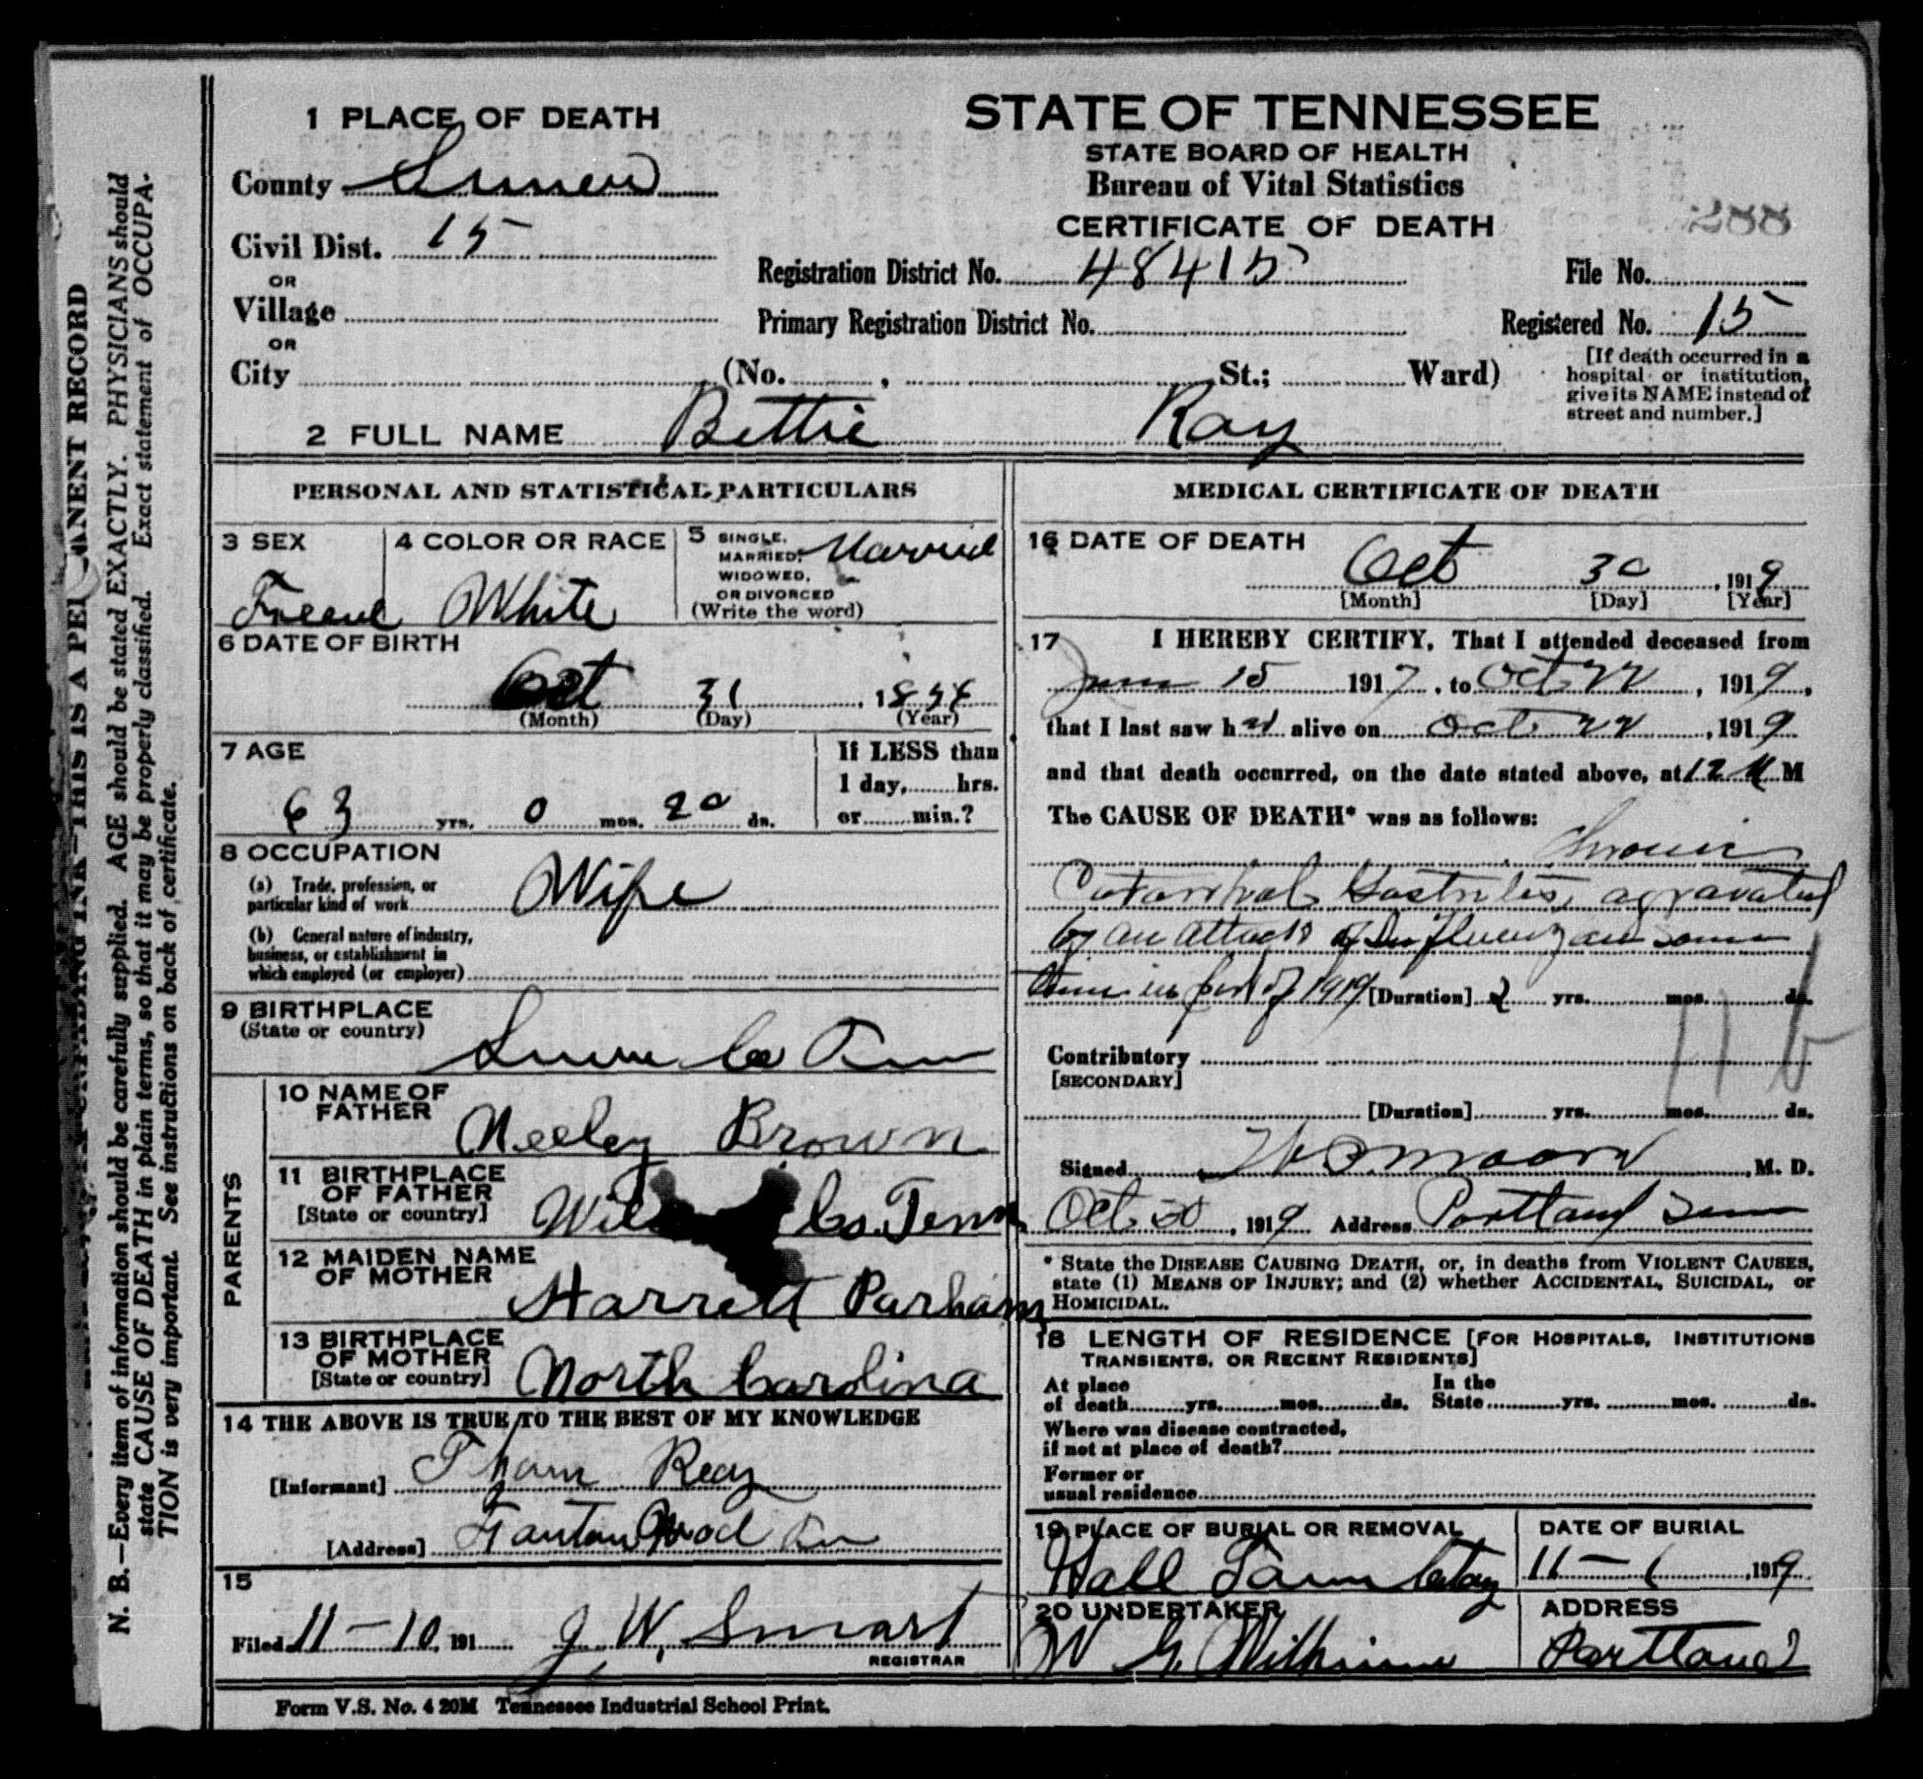 1 PLACE OF DEATH
County Sumner
Civil Dist. 15
OR
Village
OR
City (No. , St.; Ward)
STATE OF TENNESSEE
STATE BOARD OF HEALTH
Bureau of Vital Statistics
CERTIFICATE OF DEATH
288
Registration District No. 48415
File No.
Primary Registration District No.
Registered No. 15
[If death occurred in a
hospital or institution,
give its NAME instead of
street and number.]
2 FULL NAME Bettie Ray
PERSONAL AND STATISTICAL PARTICULARS
3 SEX
4 COLOR OR RACE White
5 SINGLE,
MARRIED, Married
WIDOWED,
OR DIVORCED
(Write the word)
6 DATE OF BIRTH
Oct 31 , 18
(Month) (Day) (Year)
7 AGE
63 yrs. 0 mos. 20 ds.
If LESS than
1 day, hrs.
or min.?
8 OCCUPATION
(a) Trade, profession, or
particular kind of work Wife
(b) General nature of industry,
business, or establishment in
which employed (or employer)
9 BIRTHPLACE
(State or country)
Co
PARENTS
10 NAME OF
FATHER Neeley Brown
11 BIRTHPLACE
OF FATHER
[State or country] Co. Tenn
12 MAIDEN NAME
OF MOTHER Harrett Parham
13 BIRTHPLACE
OF MOTHER
[State or country] North Carolina
14 THE ABOVE IS TRUE TO THE BEST OF MY KNOWLEDGE
[Informant] Ray
[Address]
15
Filed 11-10, 191 J. W. Smart
REGISTRAR
MEDICAL CERTIFICATE OF DEATH
16 DATE OF DEATH
Oct 30 , 1919
[Month] [Day] [Year]
17 I HEREBY CERTIFY, That I attended deceased from
15 1917, to Oct 22, 1919,
that I last saw h alive on Oct 22, 1919
and that death occurred, on the date stated above, at 12 M
The CAUSE OF DEATH* was as follows:
Catarrhal Gastritis, agravated
by an attack of Influenza some
1919 [Duration] 2 yrs. mos. ds.
Contributory
[SECONDARY]
[Duration] yrs. mos. ds.
Signed Moore, M. D.
Oct 30, 1919 Address Portland Tenn
* State the DISEASE CAUSING DEATH, or, in deaths from VIOLENT CAUSES,
state (1) MEANS OF INJURY; and (2) whether ACCIDENTAL, SUICIDAL, or
HOMICIDAL.
18 LENGTH OF RESIDENCE [FOR HOSPITALS, INSTITUTIONS
TRANSIENTS, OR RECENT RESIDENTS]
At place In the
of death yrs. mos. ds. State yrs. mos. ds.
Where was disease contracted,
if not at place of death?
Former or
usual residence
19 PLACE OF BURIAL OR REMOVAL
Hall
DATE OF BURIAL
11-1, 1919
20 UNDERTAKER
W G. Wilkinson
ADDRESS
Portland
Form V.S. No. 4 20M Tennessee Industrial School Print.
N. B.—Every item of information should be carefully supplied. AGE should be stated EXACTLY. PHYSICIANS should
state CAUSE OF DEATH in plain terms, so that it may be properly classified. Exact statement of OCCUPA-
TION is very important. See instructions on back of certificate.
THIS IS A PERMANENT RECORD